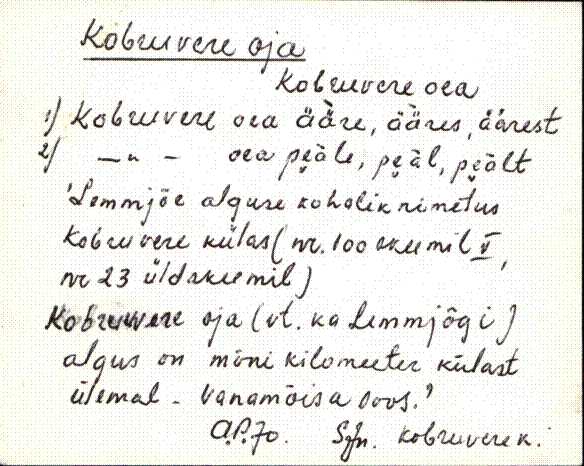 Kobruvere oja
Kobruvere oea
1) Kobruvere oea ääre, ääres, äärest
2) —„— oea pe̬äle, pe̬äl, pe̬ält
'Lemmjõe alguse kohalik nimetus
Kobruvere külas (nr. 100 skeemil V,
nr 23 üldskeemil)
Kobruvere oja (vt. ka Lemmjõgi)
algus on mõni kilomeeter külast
ülemal - Vanamõisa soos.'
Kobruvere k.